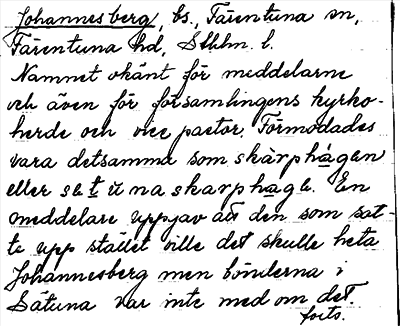 Johannesberg, bs., Färentuna sn,
Färentuna hd, Sthlm. l.
Namnet okänt för meddelarne
och även för församlingens kyrko-
herde och vice pastor. Förmodades
vara detsamma som skàrphágen
eller sætuna skarphage. En
meddelare uppgav att den som sat-
te upp stället ville det skulle heta
Johannesberg men bönderna i
Sätuna var inte med om det.
forts.